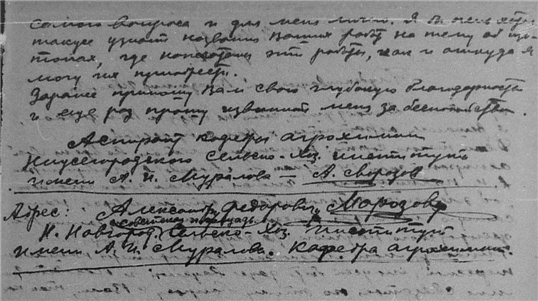 самого вопроса и для меня лично. Я очень хотел
также узнать название ваших работ на тему об изо-
топах, где напечатаны эти работы, как и откуда я
могу их приобрести.
Заранее приношу Вам свою глубокую благодарность
и еще раз прошу извинить меня за беспокойство.
Аспирант кафедры агрохимии
Нижегородского Сельско-Хоз. института
имени А. И. Муралова — А. Морозов
Адрес: Александр Федорович Морозову
Н. Новгород Сельско-Хоз. Институт
имени А. И. Муралова. Кафедра агрохимии.